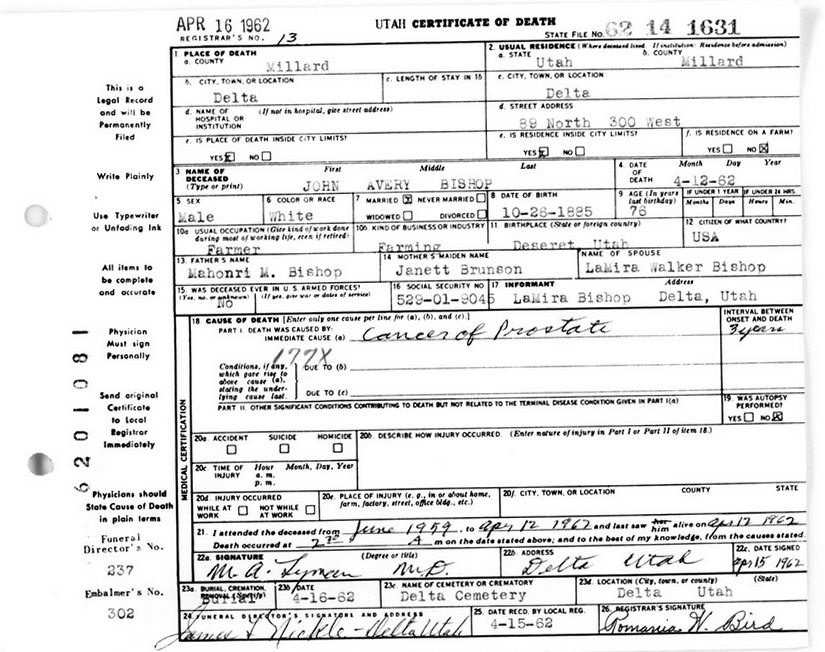 APR 16 1962
UTAH CERTIFICATE OF DEATH
REGISTRAR'S NO. 13
STATE FILE No. 62 14 1631
This is a
Legal Record
and will be
Permanently
Filed
Write Plainly
Use Typewriter
or Unfading Ink
All items to
be complete
and accurate
Physician
Must sign
Personally
Send original
Certificate
to Local
Registrar
Immediately
Physicians should
State Cause of Death
in plain terms
Funeral
Director's No.
237
Embalmer's No.
302
6201081
1 PLACE OF DEATH
a. COUNTY Millard
2. USUAL RESIDENCE (Where deceased lived. If institution: Residence before admission)
a. STATE Utah b. COUNTY Millard
b. CITY, TOWN, OR LOCATION Delta
c. LENGTH OF STAY IN 1b
c. CITY, TOWN, OR LOCATION Delta
d. NAME OF HOSPITAL OR INSTITUTION (If not in hospital, give street address)
d. STREET ADDRESS 89 North 300 West
e. IS PLACE OF DEATH INSIDE CITY LIMITS?
YES X NO
e. IS RESIDENCE INSIDE CITY LIMITS?
YES X NO
f. IS RESIDENCE ON A FARM?
YES NO X
3 NAME OF DECEASED (Type or print) First Middle Last
JOHN AVERY BISHOP
4. DATE OF DEATH Month Day Year
4-12-62
5 SEX Male
6 COLOR OR RACE White
7 MARRIED X NEVER MARRIED
WIDOWED DIVORCED
8 DATE OF BIRTH 10-26-1885
9 AGE (In years last birthday) 76
IF UNDER 1 YEAR Months Days
IF UNDER 24 HRS. Hours Min.
10a USUAL OCCUPATION (Give kind of work done during most of working life, even if retired)
Farmer
10b KIND OF BUSINESS OR INDUSTRY
Farming
11 BIRTHPLACE (State or foreign country)
Deseret, Utah
12 CITIZEN OF WHAT COUNTRY?
USA
13. FATHER'S NAME
Mahonri M. Bishop
14 MOTHER'S MAIDEN NAME
Janett Brunson
NAME OF SPOUSE
LaMira Walker Bishop
15. WAS DECEASED EVER IN U.S. ARMED FORCES?
(Yes, no, or unknown) (If yes, give war or dates of service)
No
16 SOCIAL SECURITY NO
529-01-9045
17 INFORMANT Address
LaMira Bishop Delta, Utah
18 CAUSE OF DEATH [Enter only one cause per line for (a), (b), and (c).]
INTERVAL BETWEEN ONSET AND DEATH
PART I. DEATH WAS CAUSED BY:
IMMEDIATE CAUSE (a) Cancer of Prostate
3 years
177X
Conditions, if any, which gave rise to above cause (a), stating the underlying cause last.
DUE TO (b)
DUE TO (c)
PART II. OTHER SIGNIFICANT CONDITIONS CONTRIBUTING TO DEATH BUT NOT RELATED TO THE TERMINAL DISEASE CONDITION GIVEN IN PART I(a)
19. WAS AUTOPSY PERFORMED?
YES NO X
MEDICAL CERTIFICATION
20a. ACCIDENT SUICIDE HOMICIDE
20b. DESCRIBE HOW INJURY OCCURRED. (Enter nature of injury in Part I or Part II of item 18.)
20c. TIME OF INJURY Hour a. m. p. m. Month, Day, Year
20d. INJURY OCCURRED
WHILE AT WORK NOT WHILE AT WORK
20e. PLACE OF INJURY (e. g., in or about home, farm, factory, street, office bldg., etc.)
20f. CITY, TOWN, OR LOCATION COUNTY STATE
21. I attended the deceased from June 1959, to Apr 12 1962 and last saw her him alive on Apr 12 1962
Death occurred at A m on the date stated above; and to the best of my knowledge, from the causes stated.
22a. SIGNATURE (Degree or title)
M. A. Lyman M.D.
22b. ADDRESS
Delta Utah
22c. DATE SIGNED
Apr 15 1962
23a. BURIAL, CREMATION, REMOVAL (Specify)
Burial
23b DATE
4-16-62
23c NAME OF CEMETERY OR CREMATORY
Delta Cemetery
23d. LOCATION (City, town, or county) (State)
Delta Utah
24 FUNERAL DIRECTOR'S SIGNATURE AND ADDRESS
James Nickle - Delta Utah
25. DATE RECD. BY LOCAL REG.
4-15-62
26. REGISTRAR'S SIGNATURE
Romania W. Bird